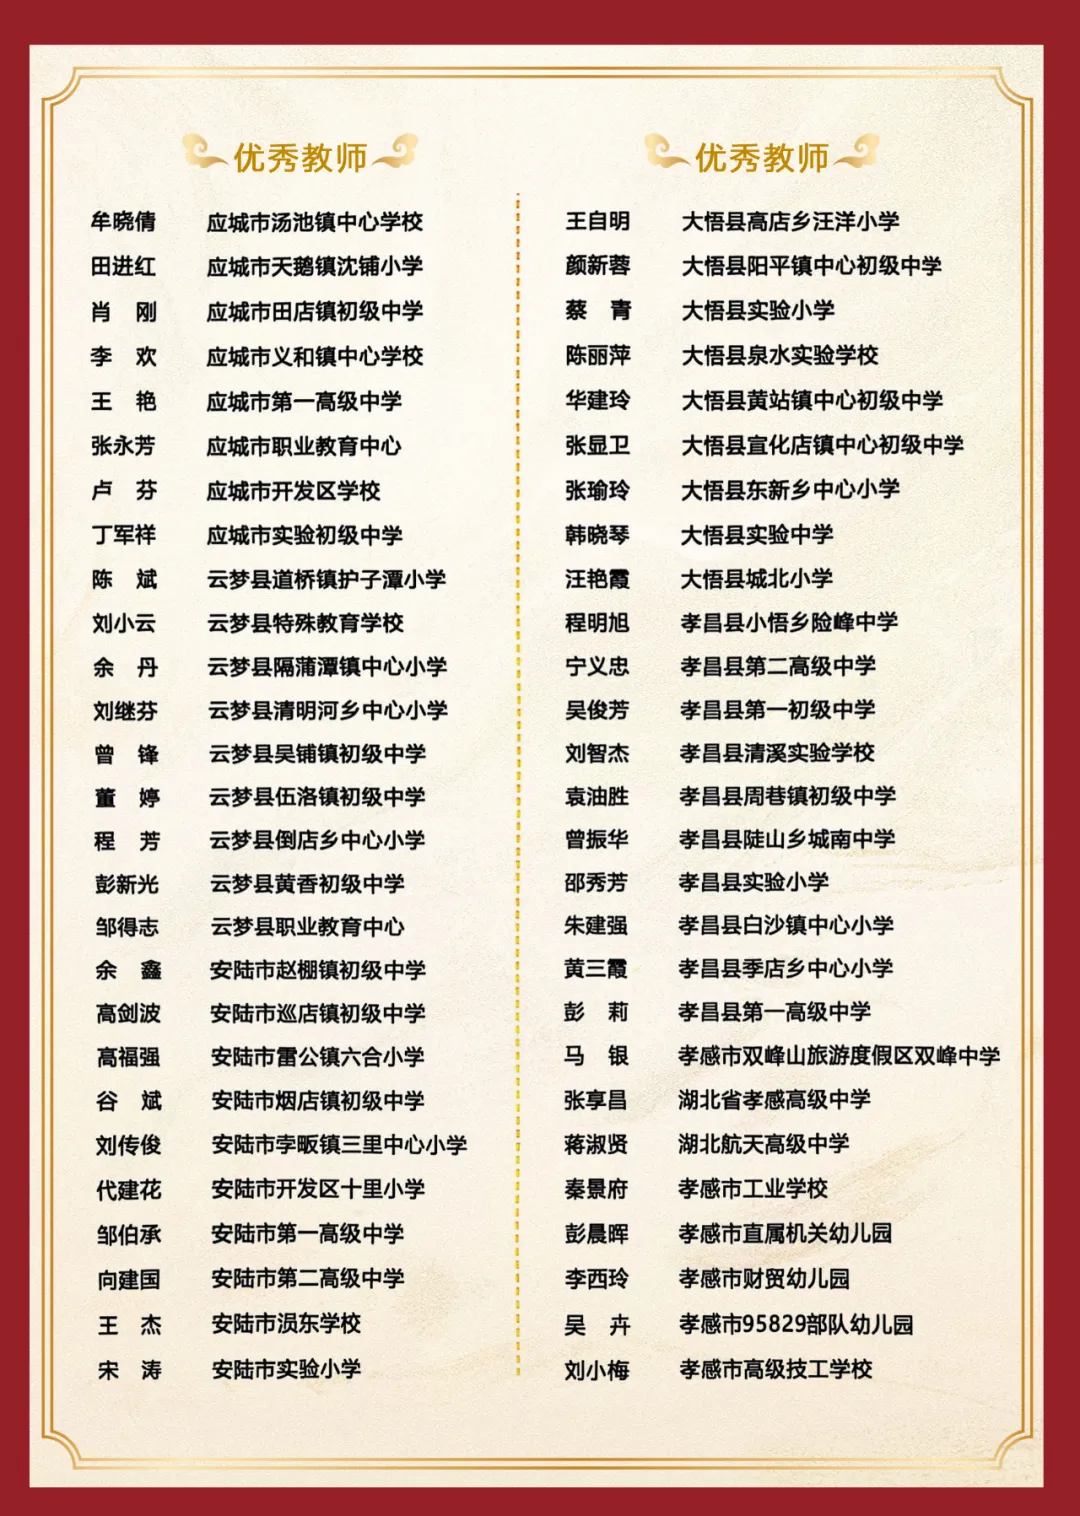 优秀教师
牟晓倩 应城市汤池镇中心学校
田进红 应城市天鹅镇沈铺小学
肖 刚 应城市田店镇初级中学
李 欢 应城市义和镇中心学校
王 艳 应城市第一高级中学
张永芳 应城市职业教育中心
卢 芬 应城市开发区学校
丁军祥 应城市实验初级中学
陈 斌 云梦县道桥镇护子潭小学
刘小云 云梦县特殊教育学校
余 丹 云梦县隔蒲潭镇中心小学
刘继芬 云梦县清明河乡中心小学
曾 锋 云梦县吴铺镇初级中学
董 婷 云梦县伍洛镇初级中学
程 芳 云梦县倒店乡中心小学
彭新光 云梦县黄香初级中学
邹得志 云梦县职业教育中心
余 鑫 安陆市赵棚镇初级中学
高剑波 安陆市巡店镇初级中学
高福强 安陆市雷公镇六合小学
谷 斌 安陆市烟店镇初级中学
刘传俊 安陆市孛畈镇三里中心小学
代建花 安陆市开发区十里小学
邹伯承 安陆市第一高级中学
向建国 安陆市第二高级中学
王 杰 安陆市涢东学校
宋 涛 安陆市实验小学
优秀教师
王自明 大悟县高店乡汪洋小学
颜新蓉 大悟县阳平镇中心初级中学
蔡 青 大悟县实验小学
陈丽萍 大悟县泉水实验学校
华建玲 大悟县黄站镇中心初级中学
张显卫 大悟县宣化店镇中心初级中学
张瑜玲 大悟县东新乡中心小学
韩晓琴 大悟县实验中学
汪艳霞 大悟县城北小学
程明旭 孝昌县小悟乡险峰中学
宁义忠 孝昌县第二高级中学
吴俊芳 孝昌县第一初级中学
刘智杰 孝昌县清溪实验学校
袁油胜 孝昌县周巷镇初级中学
曾振华 孝昌县陡山乡城南中学
邵秀芳 孝昌县实验小学
朱建强 孝昌县白沙镇中心小学
黄三霞 孝昌县季店乡中心小学
彭 莉 孝昌县第一高级中学
马 银 孝感市双峰山旅游度假区双峰中学
张享昌 湖北省孝感高级中学
蒋淑贤 湖北航天高级中学
秦景府 孝感市工业学校
彭晨晖 孝感市直属机关幼儿园
李西玲 孝感市财贸幼儿园
吴 卉 孝感市95829部队幼儿园
刘小梅 孝感市高级技工学校